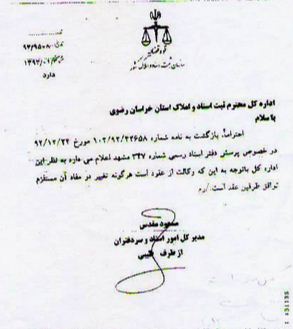 قوه قضائیه
سازمان ثبت اسناد و املاک کشور
دارد
اداره کل محترم ثبت اسناد و املاک استان خراسان رضوی
با سلام
احتراماً، بازگشت به نامه شماره ۱۰۲/۹۲/۴۲۶۵۸ مورخ ۹۲/۱۲/۲۲
در خصوص پرسش دفتر اسناد رسمی شماره ۳۴۷ مشهد اعلام می دارد به نظر این
اداره کل باتوجه به این که وکالت از عقود است هرگونه تغییر در مفاد آن مستلزم
توافق طرفین عقد است.
مسعود مقدس
مدیر کل امور اسناد و سردفتران
از طرف